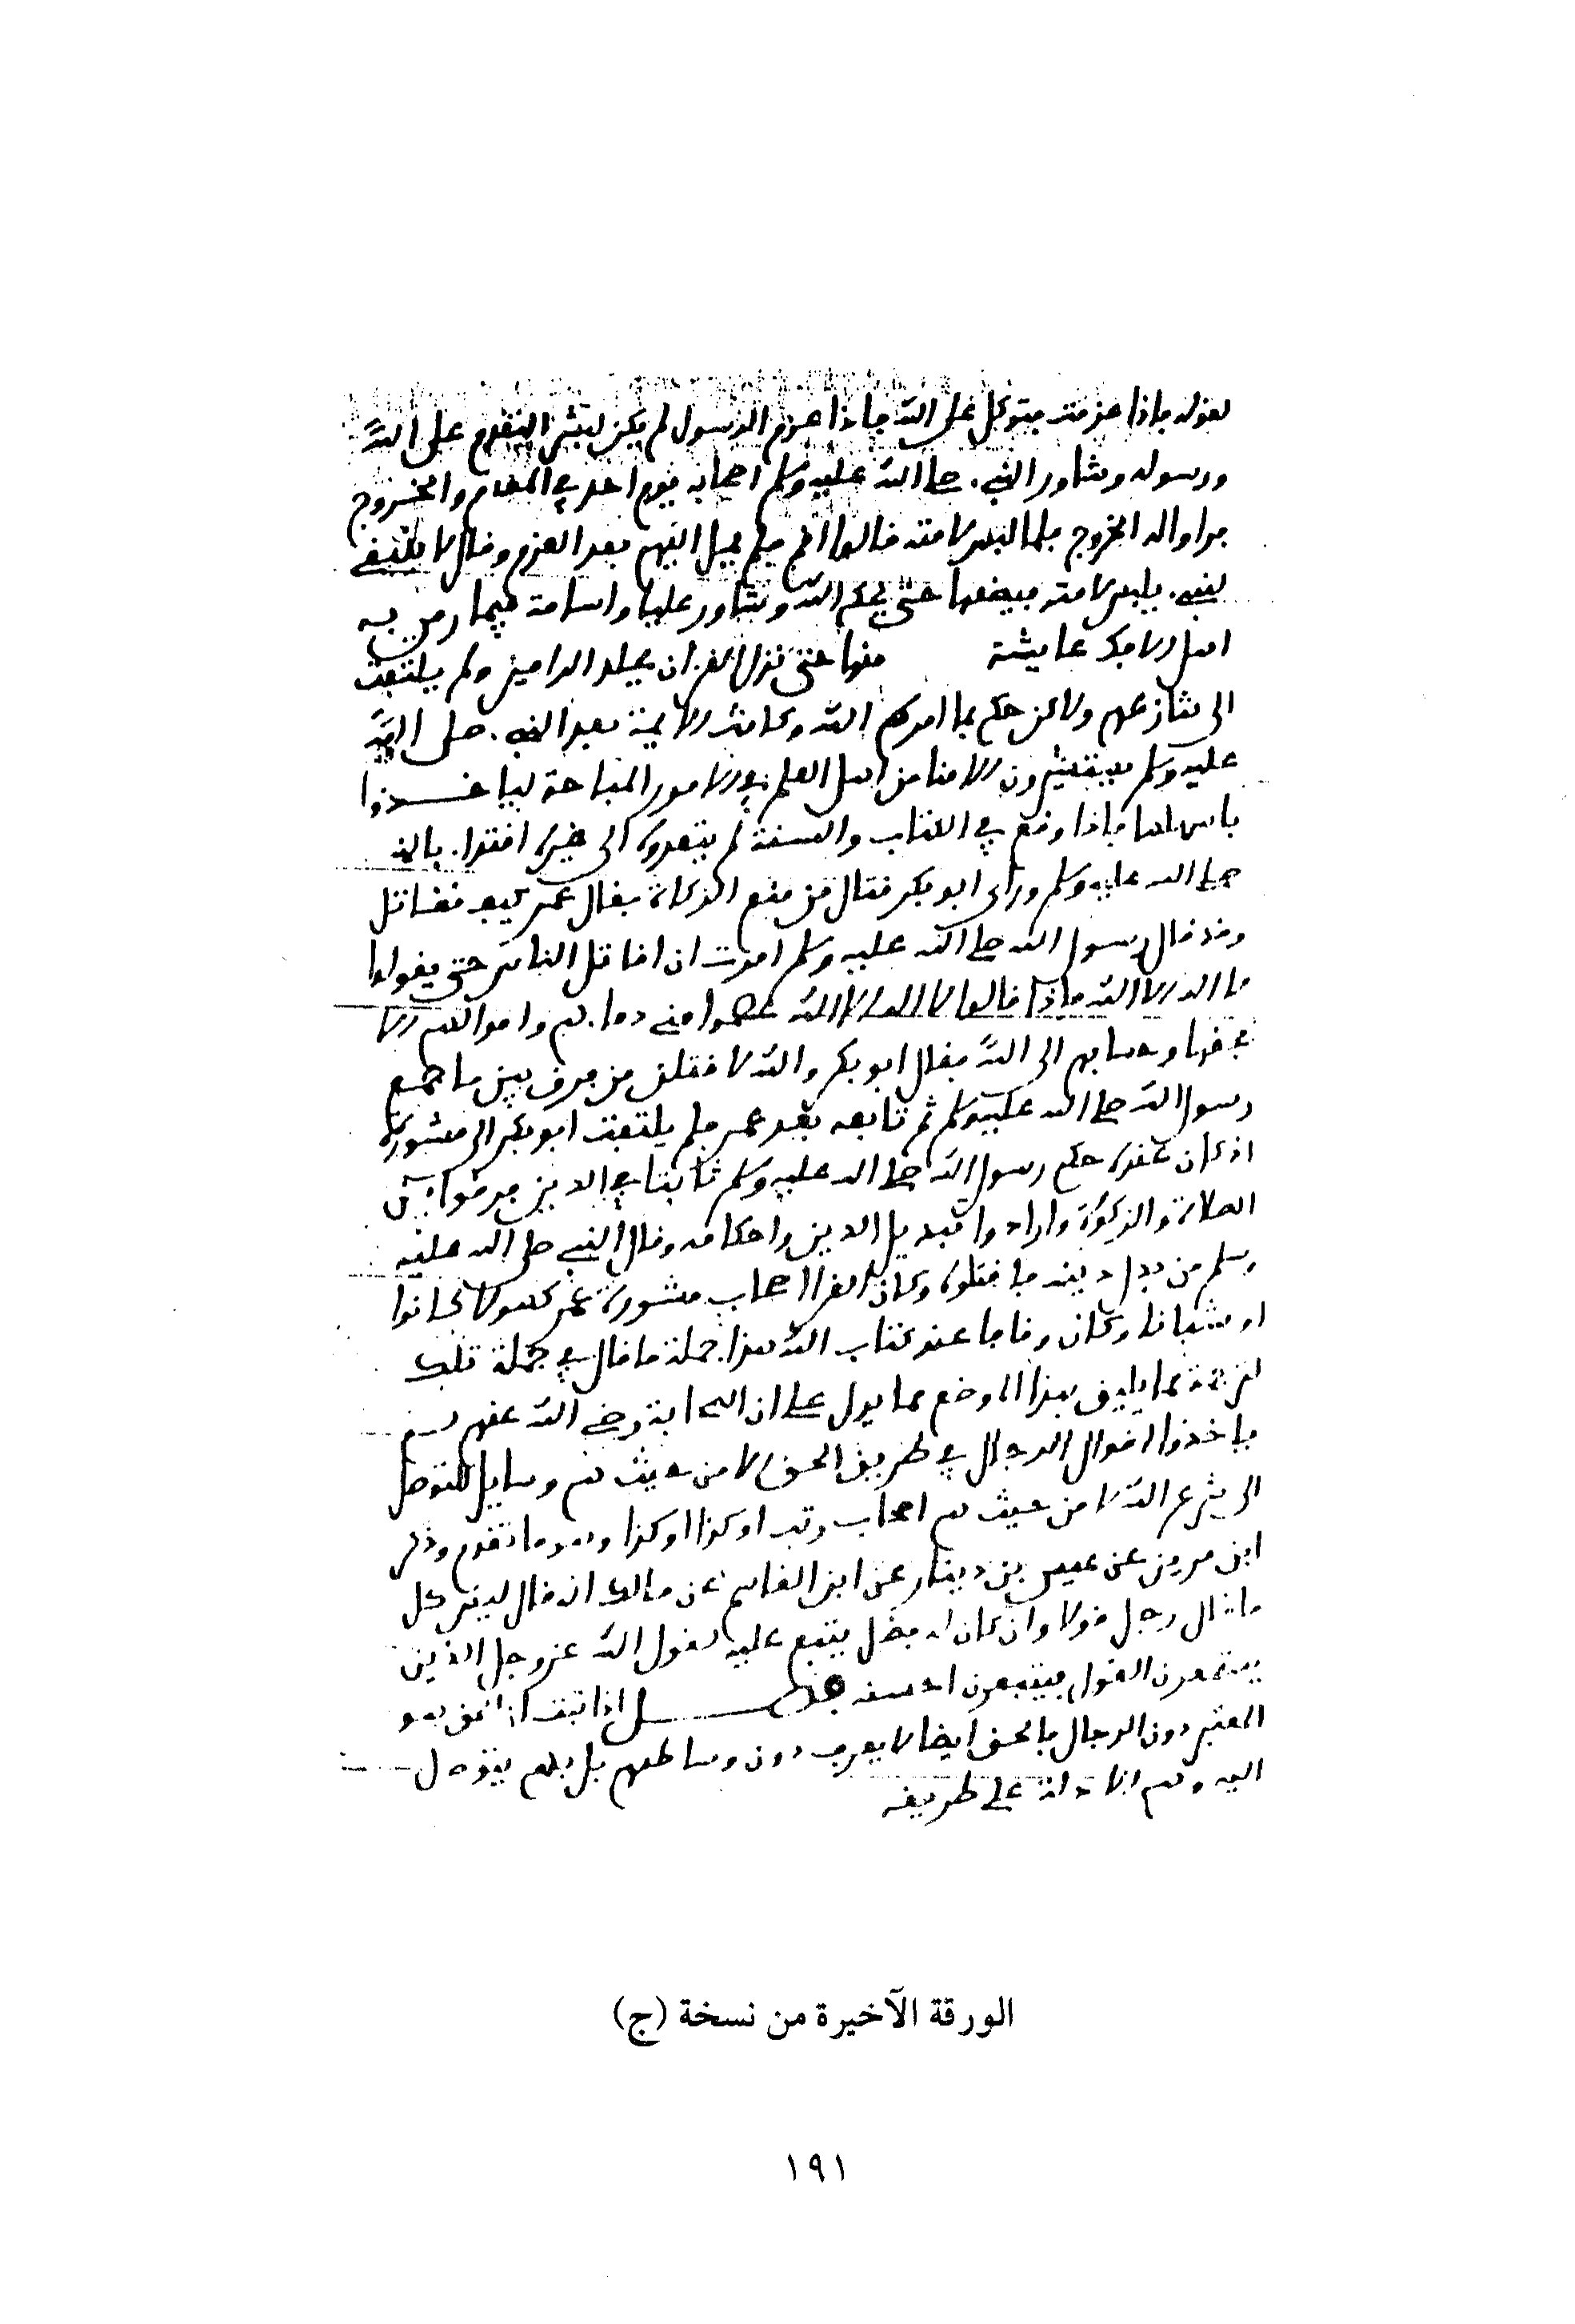 لقوله فإذا عزمت فتوكل على الله فإذا عزم الرسول لم يكن لبشر التقدم على الله
ورسوله وشاور النبي صلى الله عليه وسلم اصحابه يوم احد في المقام والخروج
فراوا له الخروج فلما لبس لامته قالوا اقم فلم يمل اليهم بعد العزم وقال لا ينبغي
لنبي يلبس لامته فيضعها حتى يحكم الله وشاور عليا واسامة فيما رمى به
اهل الافك عايشة منها حتى نزل القران فجلد الرامين ولم يلتفت
الى تنازعهم ولاكن حكم بما امره الله وكانت الايمة بعد النبي صلى الله
عليه وسلم يستشيرون الامنا من اهل العلم في الامور المباحة لياخذوا
باسهلها فاذا وقع في الكتاب والسنة لم يتعدوه الى غيره اقتدا بالنبي
صلى الله عليه وسلم وراى ابو بكر قتال من منع الزكاة فقال عمر كيف تقاتل
وقد قال رسول الله صلى الله عليه وسلم امرت ان اقاتل الناس حتى يقولوا
لا اله الا الله فاذا قالوا لا اله الا الله عصموا مني دماءهم واموالهم الا
بحقها وحسابهم الى الله فقال ابو بكر والله لاقتلن من فرق بين ما جمع
رسول الله صلى الله عليه وسلم ثم تابعه بعد عمر فلم يلتفت ابو بكر الى مشورة
اذ كان عنده حكم رسول الله صلى الله عليه وسلم ثابتا في الدين فرقوا بين
الصلاة والزكوة وارادوا تبديل الدين واحكامه وقال النبي صلى الله عليه
وسلم من بدل دينه فاقتلوه وكان القرا اصحاب مشورة عمر كهولا كانوا
او شبانا وكان وقافا عند كتاب الله هذا جملة ما قال في جملة تلك
الترجمة مما يليق بهذا الموضع مما يدل على ان الصحابة رضي الله عنهم لم
ياخذوا اقوال الرجال في طريق الحق الا من حيث هم وسايل للتوصل
الى شرع الله لا من حيث هم اصحاب رتب او كذا او كذا وهو ما تقدم وذكر
ابن مزين عن عيسى بن دينار عن ابن القاسم عن مالك انه قال ليس كل
ما قال رجل قولا وان كان له فضل يتبع عليه لقول الله عز وجل الذين
يستمعون القول فيتبعون احسنه فصل اذا ثبت ان الحق هو
المعتبر دون الرجال فالحق ايضا لا يعرف دون وساطتهم بل بهم يتوصل
اليه وهم الادلة على طريقه
الورقة الآخيرة من نسخة (ج)
١٩١